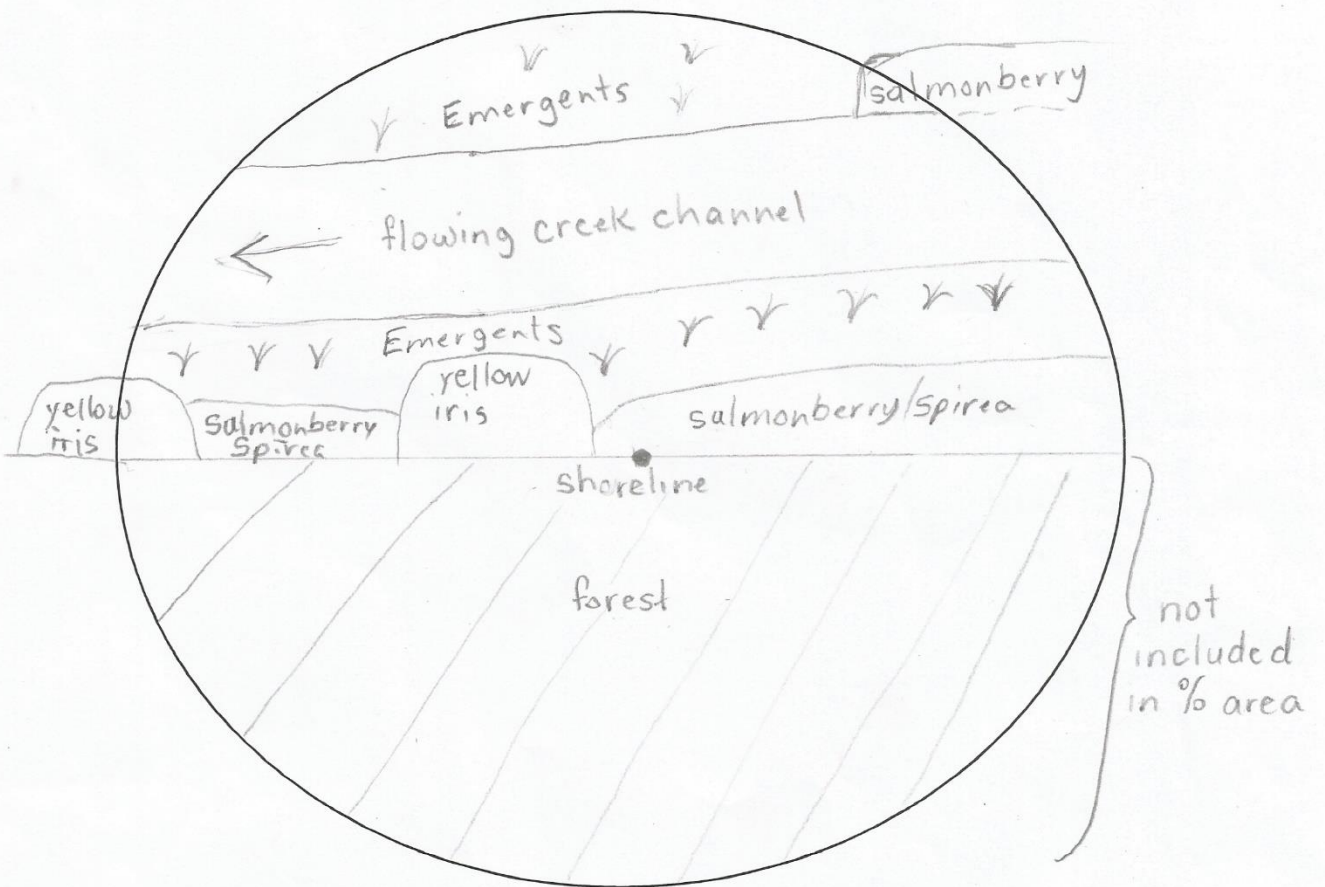 Emergents
salmonberry
flowing creek channel
Emergents
yellow
iris
yellow
iris
Salmonberry
Spirea
salmonberry/Spirea
shoreline
forest
not
included
in % area